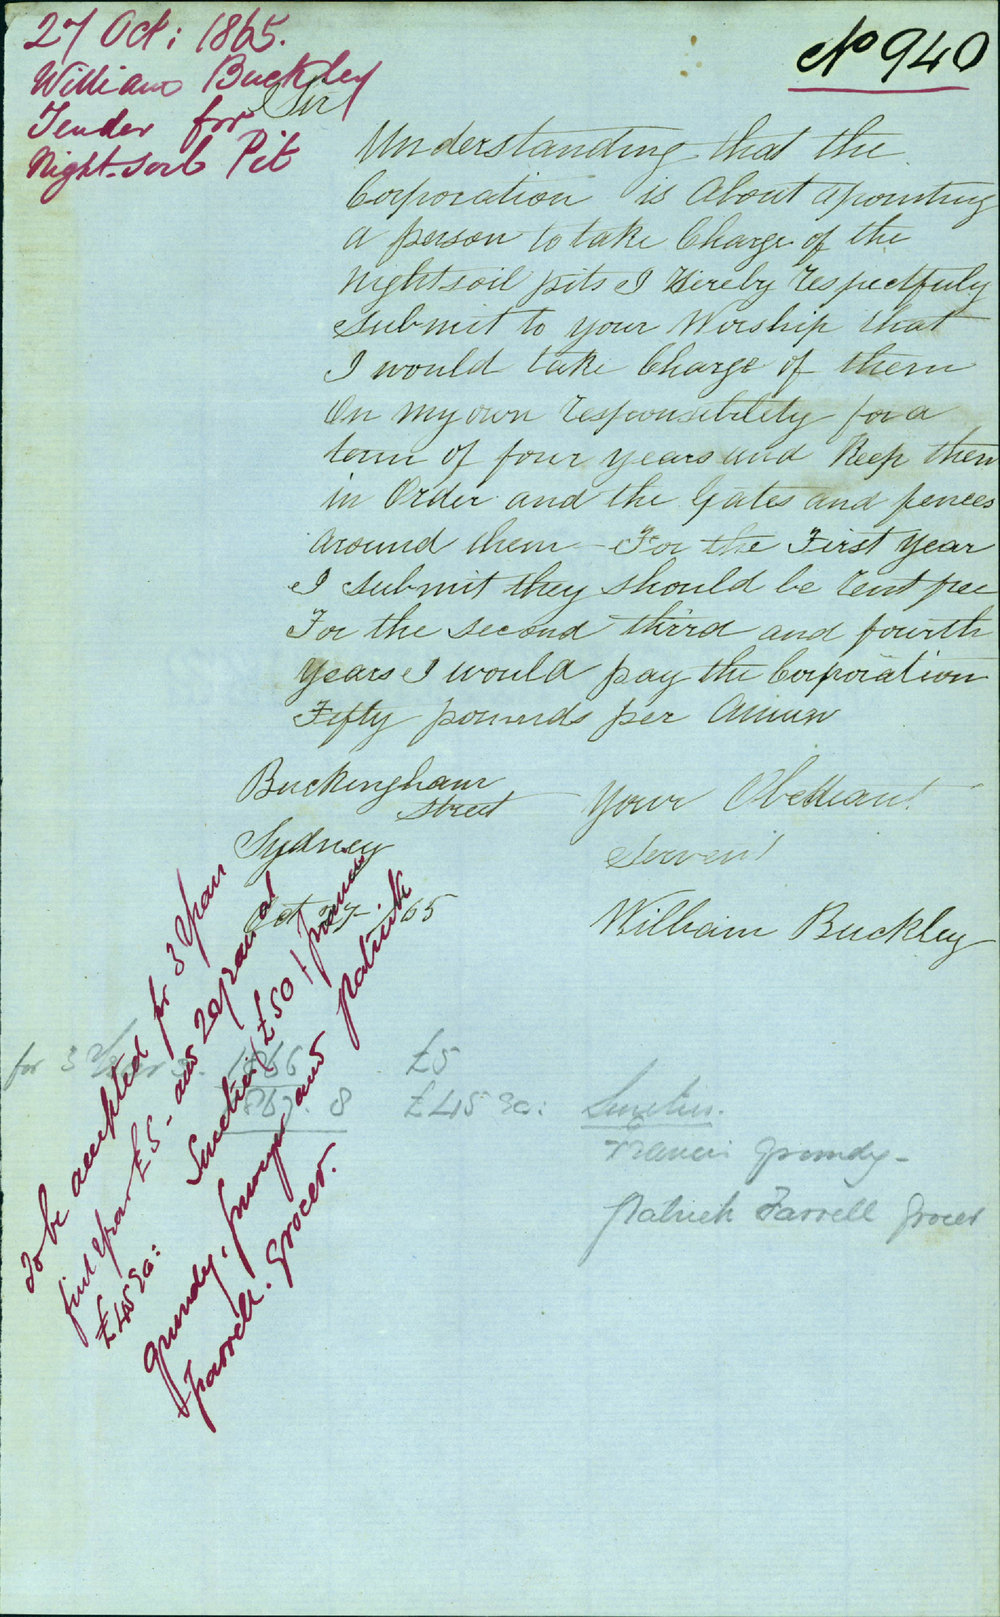 27 Oct: 1865.
William Buckley
Tender for
Night-soil Pit
No 940
Sir
Understanding that the
Corporation is About apointing
a person to take Charge of the
nightsoil pits I Hereby Respectfuly
submit to your Worship that
I would take Charge of them
On my own responsibility for a
term of four years and Keep them
in Order and the Gates and fences
around them - For the First Year
I submit they should be rent free
For the second third and fourth
years I would pay the Corporation
Fifty pounds per Annum
Buckingham
Street
Sydney
Oct 27 /65
Your Obediant
Servent
William Buckley
To be accepted for 3 Years
first Year £5 - and 2 years at
£45 ea:
Sureties £50 / Francis
Grundy, and Patrick
Farrell. Grocer.
for 3 Years. 1866 £5
1867. 8 £45 ea: Sureties.
Francis Grundy -
Patrick Farrell Grocer